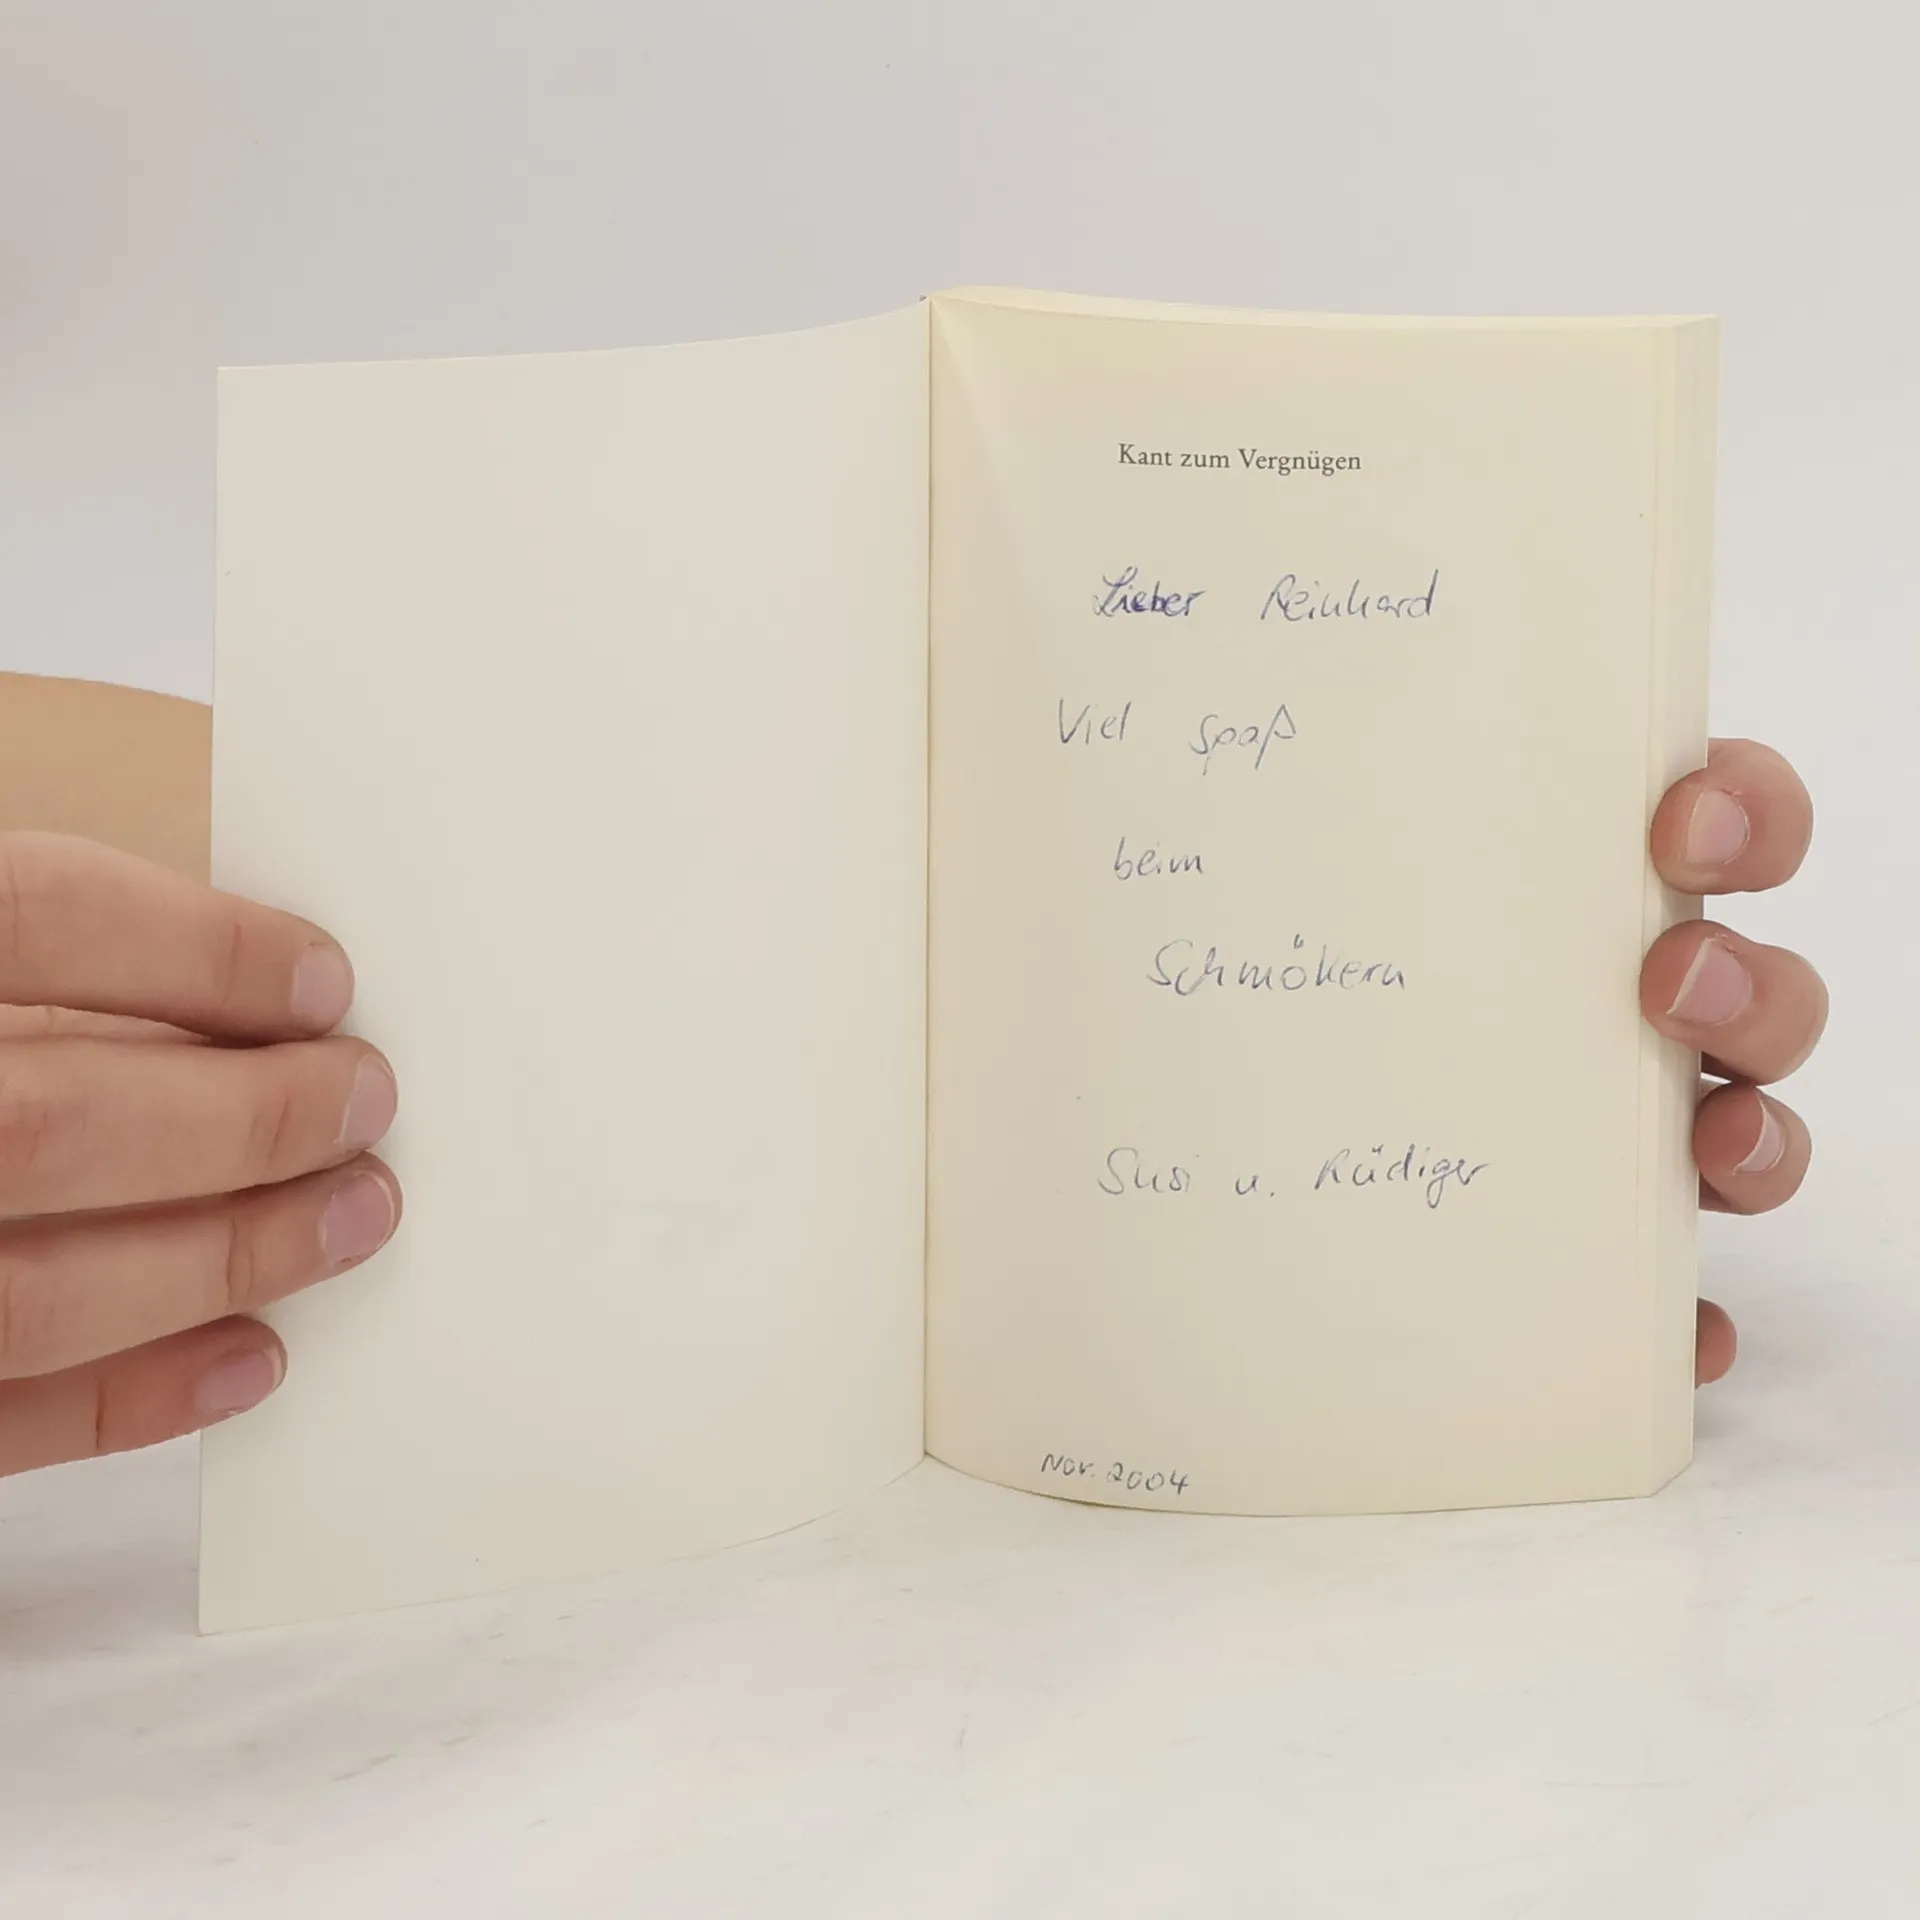 Kant zum Vergnügen
Lieber Reinhard
Viel Spaß
beim
Schmökern
Susi u. Rüdiger
Nov. 2004